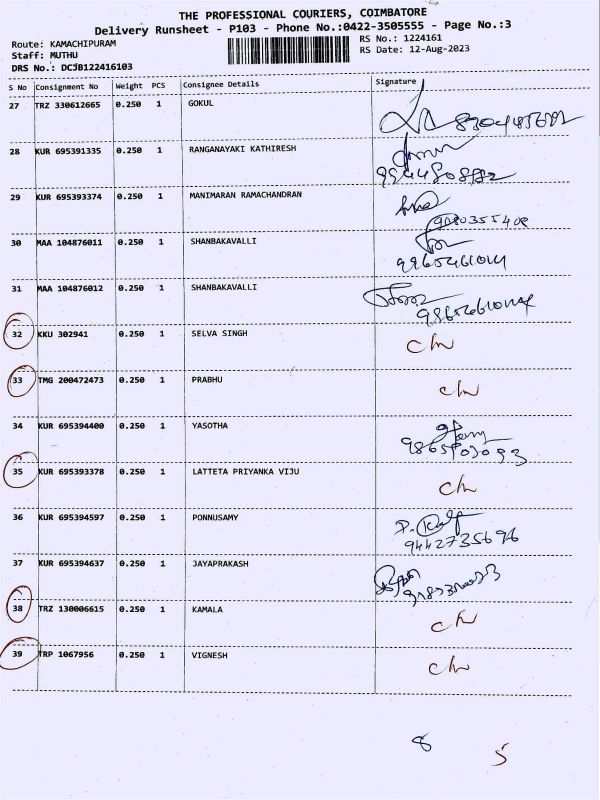 THE PROFESSIONAL COURIERS, COIMBATORE
Delivery Runsheet - P103 - Phone No.:0422-3505555 - Page No.:3
Route: KAMACHIPURAM
RS No.: 1224161
Staff: MUTHU
RS Date: 12-Aug-2023
DRS No.: DCJB122416103
S No Consignment No Weight PCS Consignee Details Signature
27 TRZ 330612665 0.250 1 GOKUL
28 KUR 695391335 0.250 1 RANGANAYAKI KATHIRESH
29 KUR 695393374 0.250 1 MANIMARAN RAMACHANDRAN
30 MAA 104876011 0.250 1 SHANBAKAVALLI
31 MAA 104876012 0.250 1 SHANBAKAVALLI
32 KKU 302941 0.250 1 SELVA SINGH
33 TMG 200472473 0.250 1 PRABHU
34 KUR 695394400 0.250 1 YASOTHA
35 KUR 695393378 0.250 1 LATTETA PRIYANKA VIJU
36 KUR 695394597 0.250 1 PONNUSAMY
9442735696
37 KUR 695394637 0.250 1 JAYAPRAKASH
38 TRZ 130006615 0.250 1 KAMALA
39 TRP 1067956 0.250 1 VIGNESH
8
5